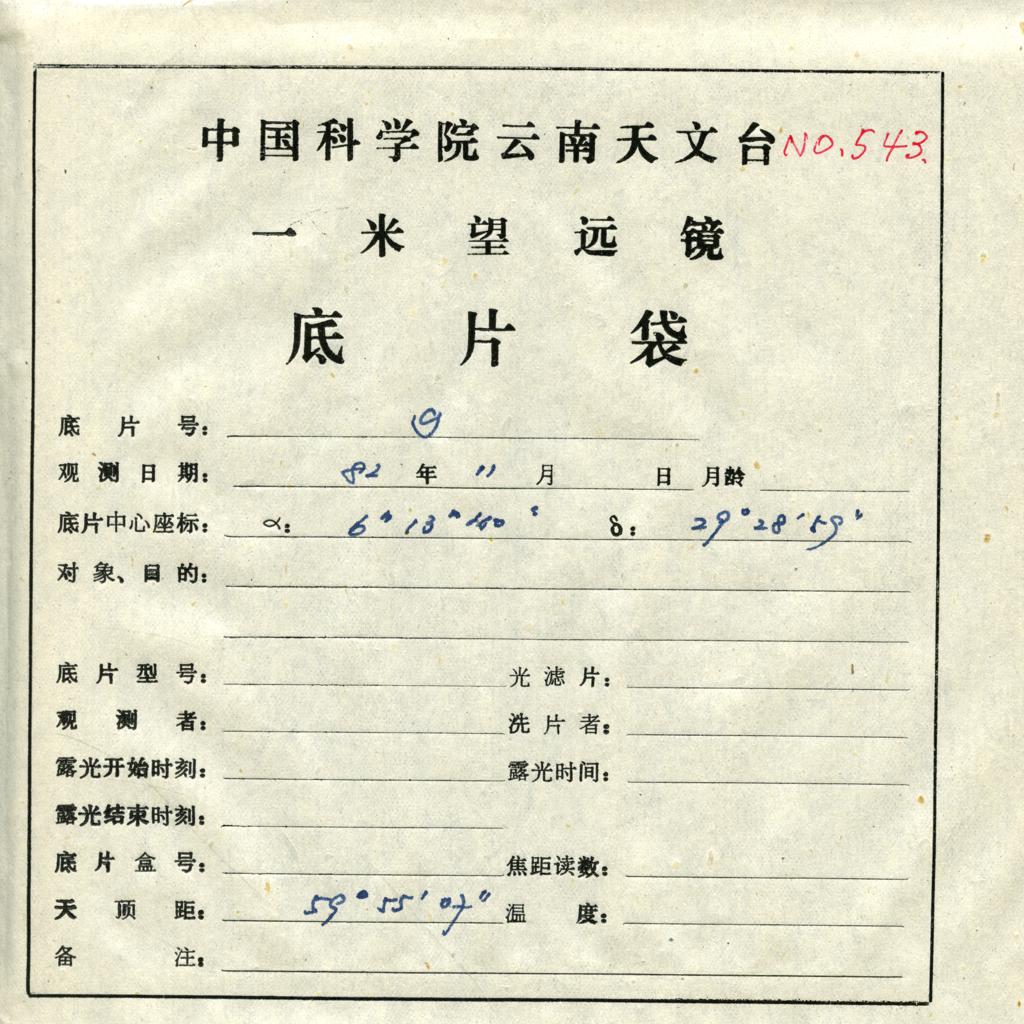 中国科学院云南天文台 NO.543.
一米望远镜
底片袋
底片号：
观测日期： 82 年 11 月 日 月龄
底片中心座标： α： 6ʰ 13ᵐ 40ˢ δ： 29°28′59″
对象、目的：
底片型号： 光滤片：
观测者： 洗片者：
露光开始时刻： 露光时间：
露光结束时刻：
底片盒号： 焦距读数：
天顶距： 59°55′07″ 温度：
备注：